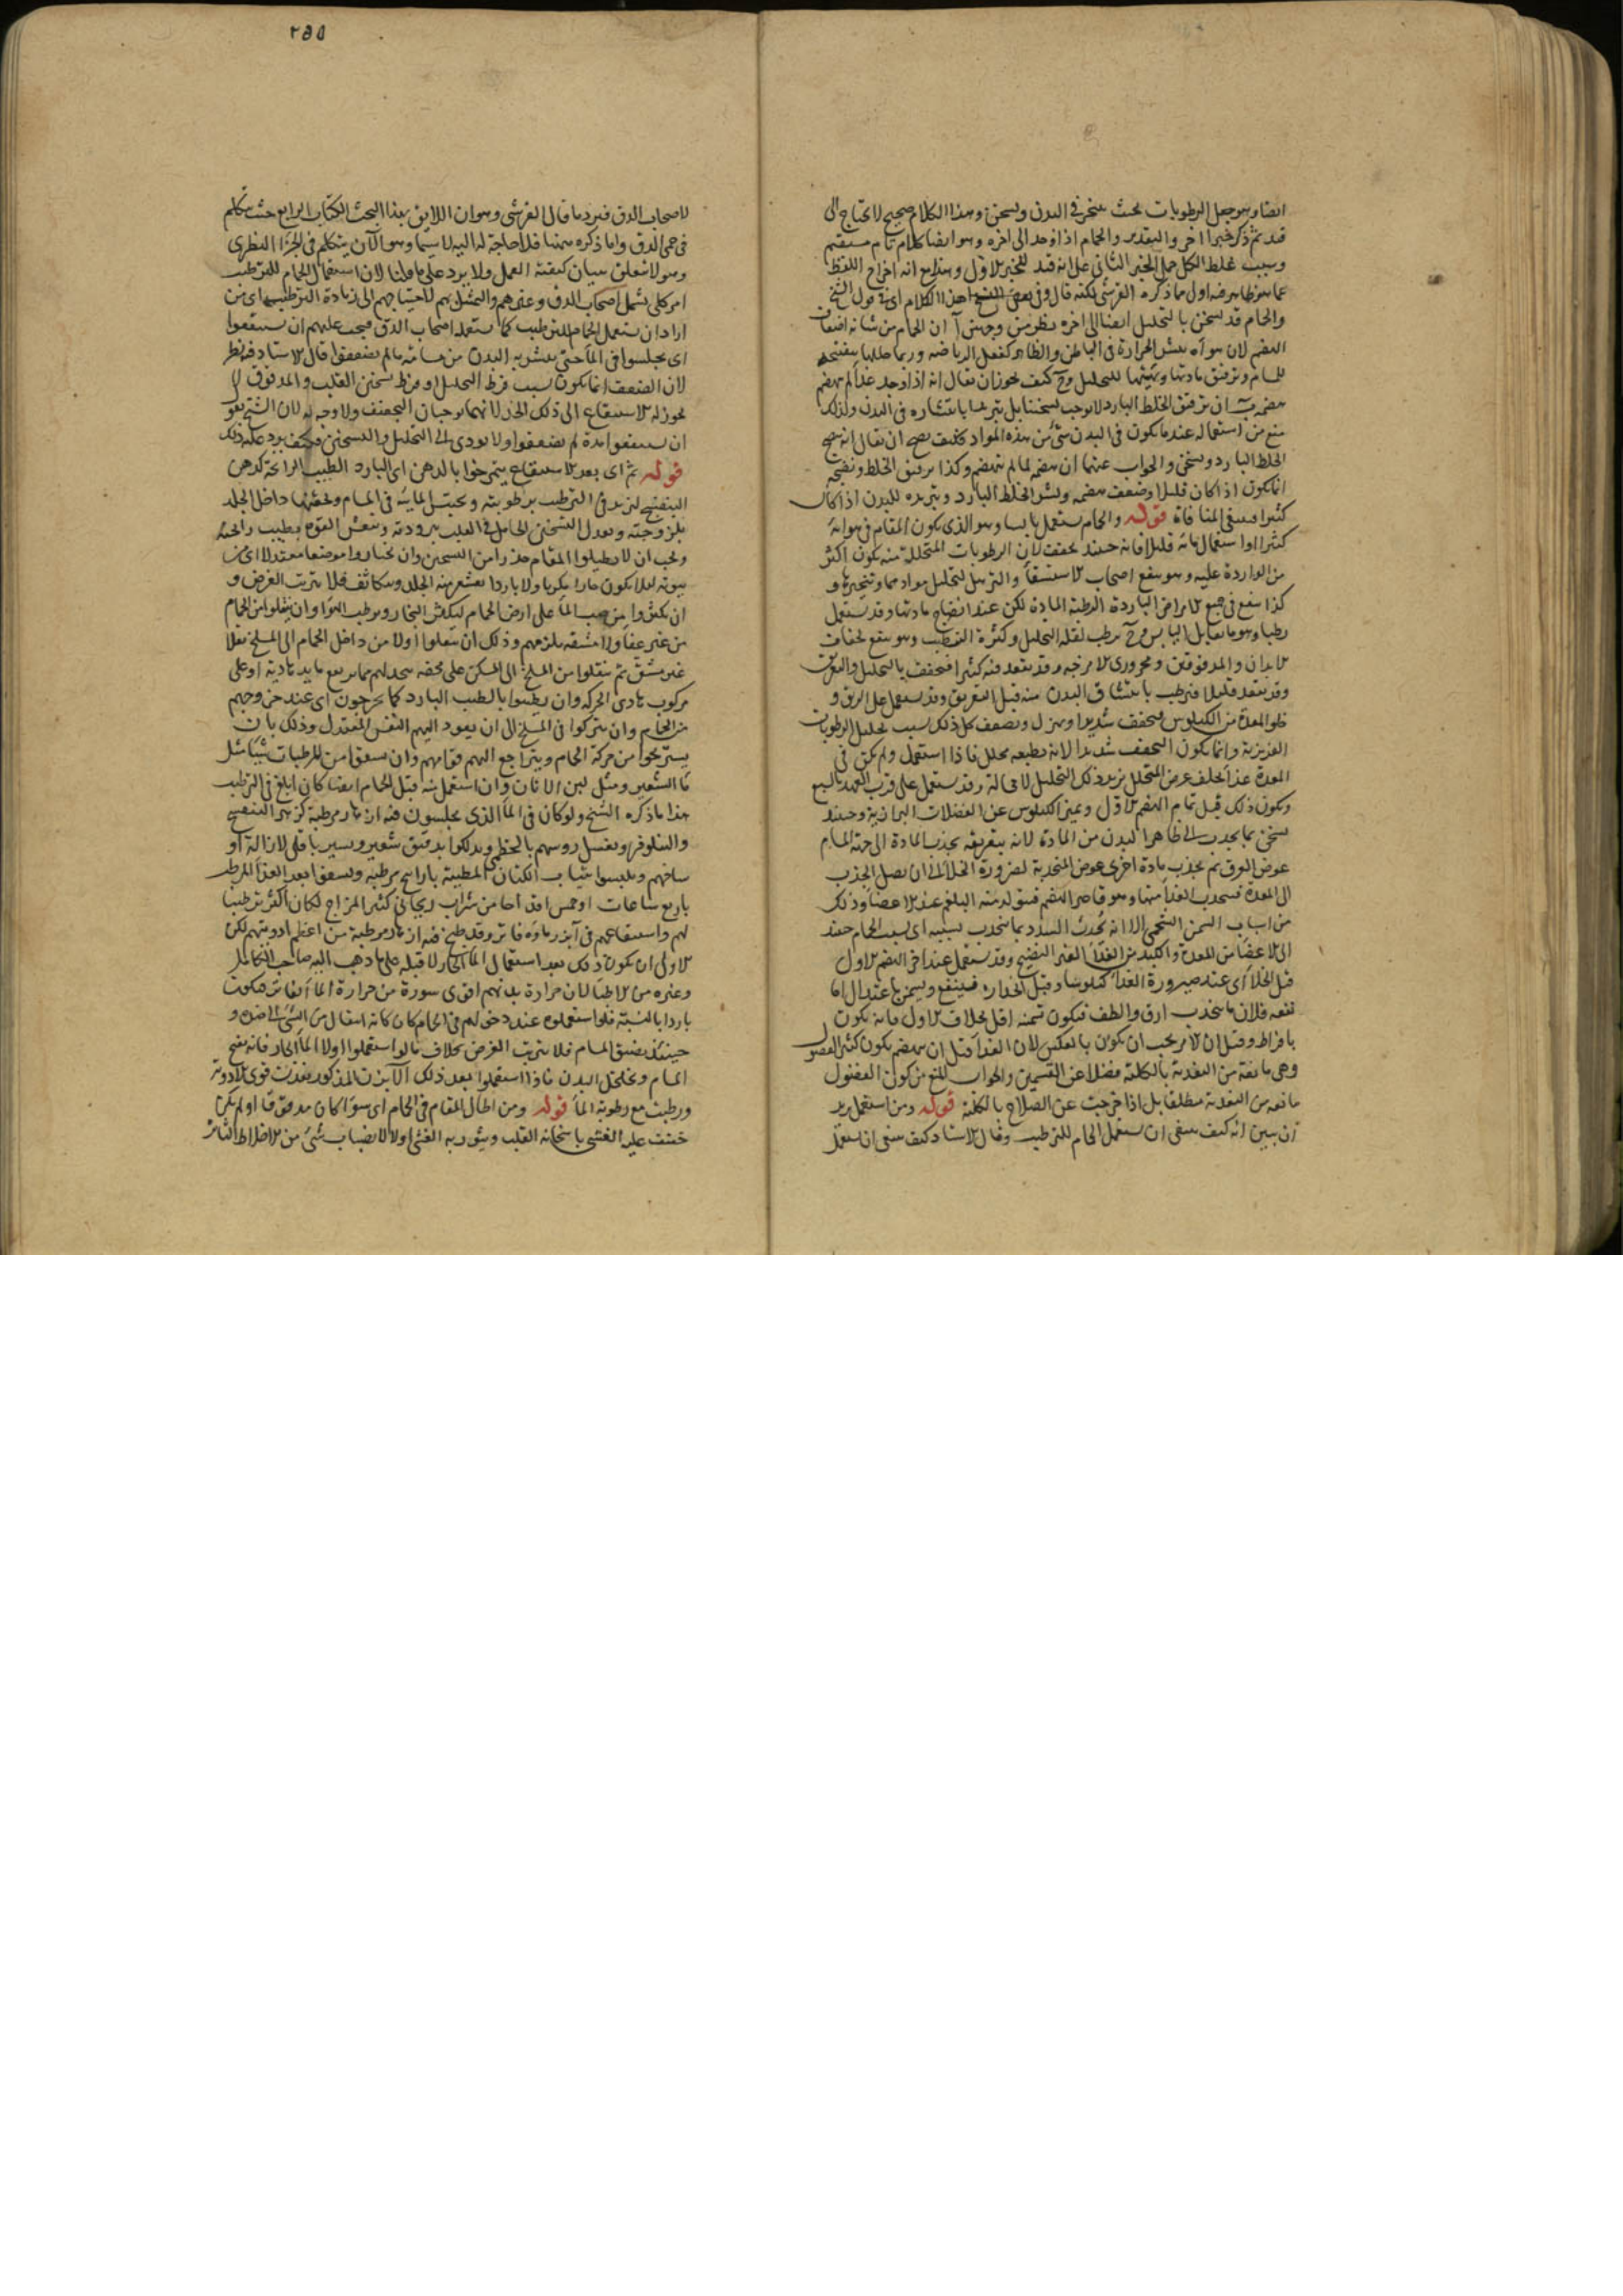 ايضا وهو جعل الرطوبات بحيث يتبخر في البدن ويسخن وهذا الكلام صحيح لا يحتاج الى
قيد ثم ذكر خبرا اخر والتقدير والحمام اذا وجد الى اخره وهو ايضا كلام تام مستقيم
وسبب غلط الكل حمل الخبر الثاني على انه قيد للخبر الاول وهذا مع انه اخراج اللفظ
عما هو ظاهر فيه اول مما ذكره القرشي لكنه قال وفي بعض النسخ هذا الكلام اى في قول الشيخ
والحمام قد يسخن بالتحليل ايضا الى اخره نظر من وجهين آ ان الحمام من شانه اضعاف
الهضم لان هواه ينشر الحرارة في الباطن والظاهر كفعل الرياضة وربما حللها بتفتيحه
للمسام وترقيق مادتها وتهيئتها للتحليل وح كيف يجوز ان يقال انه اذا وجد غذا لم يهضم
هضمه ب ان ترقيق الخلط البارد لا يوجب تسخينا بل تبريدا بانتشاره في البدن ولذلك
منع من استعماله عندما يكون في البدن شئ من هذه المواد فكيف يصح ان يقال انه
الخلط البارد ويسخن والجواب عنهما ان هضمه لما لم ينهضم وكذا ترقيق الخلط ونضجه
انما يكون اذا كان قليلا وضعف هضمه ونشر الخلط البارد وتبريده للبدن اذا كان
كثيرا فينتفى المنافاة قوله والحمام يستعمل يابسا وهو الذى يكون المقام في هوائه
كثيرا واستعمال مائه قليلا فانه حينئذ يجفف لان الرطوبات المتحللة منه يكون اكثر
من الواردة عليه وهو ينفع اصحاب الاستسقا والترهل لتحليل موادهما وتبخيرها و
كذا ينفع في جميع الامراض الباردة الرطبة المادة لكن عند انضاج مادتها وقد يستعمل
رطبا وهو ما يقابل اليابس وح يرطب لقلة التحليل وكثرة الترطيب وهو ينفع نحفاء
الابدان والمدقوقين ومحرورى الامزجة وقد يقعد فيه كثيرا فيجفف بالتحليل والتعريق
وقد يقعد قليلا فيرطب بانتشاف البدن منه قبل التعريق وقد يستعمل على الريق و
خلو المعدة من الكيلوس فيجفف شديدا ويهزل ويضعف كل ذلك بسبب تحليل الرطوبات
الغريزية وانما يكون التجفيف شديدا لانه بطبعه محلل فاذا استعمل ولم يكن في
المعدة غذا يخلف عوض المتحلل يزيد ذلك التحليل لا محالة وقد يستعمل على قرب العهد بالشبع
ويكون ذلك قبل تمام الهضم الاول وتميز الكيلوس عن الفضلات البرازية وحينئذ
يسخن بما يجذب الى ظاهر البدن من المادة لانه بتعريقه يجذب المادة الى جهة المسام
عوض العرق ثم يجذب مادة اخرى عوض المنجذبة لضرورة الخلا الى ان يصل الجذب
الى المعدة فينجذب الغذا منها وهو قاصر الهضم فيتولد منه البلغم عند الاعضا وذلك
من اسباب السمن الشحمى الا انه يحدث السدد بما ينجذب بسببه اى بسبب الحمام حينئذ
الى الاعضا من المعدة والكبد من الغذا الغير النضيج وقد يستعمل عند اخر الهضم الاول
قبل الخلا اى عند صيرورة الغذا كيلوسا وقبل انحداره فينفع ويسمن باعتدال اما
نفعه فلان ما ينجذب ارق والطف فيكون تسمينه اقل بخلاف الاول فانه يكون
بافراط وقيل ان الامر يجب ان يكون بالعكس لان الغذا قبل ان ينهضم يكون كثير الفضول
وهى مانعة من التغذية بالكلية فضلا عن التسمين والجواب المنع من كون الفضول
مانعه من التغذية مطلقا بل اذا خرجت عن الصلاح بالكلية قوله ومن استعمل يريد
ان يبين انه كيف ينبغى ان يستعمل الحمام للترطيب وقال الاستاد كيف ينبغى ان يستعمل
٢٥٥
لاصحاب الدق فيرد ما قال القرشى وهو ان اللايق بهذا البحث الكتاب الرابع حيث يتكلم
في حمى الدق واما ذكره ههنا فلا حاجة له اليه لا سيما وهو الآن يتكلم في الجزا النظرى
وهو لا تعلق ببيان كيفية العمل ولا يرد على ما قلنا لان استعمال الحمام للترطيب
امر كلى يشمل اصحاب الدق وغيرهم والتمثيل بهم لاحتياجهم الى زيادة الترطيب اى من
اراد ان يستعمل الحمام للترطيب كما يستعمله اصحاب الدق فيجب عليهم ان يستنقعوا
اى يجلسوا في الماء حتى يتشربه البدن من مسامه ما لم يضعفوا قال الاستاد فيه نظر
لان الضعف انما يكون بسبب فرط التحليل او فرط تسخين القلب والمدقوق لا
يجوز له الاستنقاع الى ذلك الحد لانهما يوجبان التجفيف ولا وجه له لان الشيخ يقول
ان يستنقعوا مدة لم يضعفوا ولا يودى الى التحليل والتسخين فكيف يرد عليه ذلك
قوله ثم اى بعد الاستنقاع يتمرخوا بالدهن اى البارد الطيب الرايحة كدهن
البنفسج ليزيد في الترطيب برطوبته ويحبس المائية في المسام ويحقنها داخل الجلد
بلزوجته ويعدل التسخين الحاصل في القلب ببرودته وينعش القوة بطيب رائحته
ويجب ان لا يطيلوا المقام حذرا من التسخين وان يختاروا موضعا معتدلا اى من
بيوته لئلا يكون حارا يكربها ولا باردا يقشعر منه الجلد ويتكاثف فلا يترتب الغرض و
ان يكثروا من صب الماء على ارض الحمام ليكثر البخار ويرطب الهوا وان ينقلوا من الحمام
من غير عنا ولا مشقة يلزمهم وذلك ان ينقلوا اولا من داخل الحمام الى المسلخ نقلا
غير مشق ثم ينقلوا من المسلخ الى المسكن على محفة
مركوب هادى الحركة وان يطيبوا بالطيب البارد كما يخرجون اى عند خروجهم
من الحمام وان يتركوا في المسلخ الى ان يعود اليهم النفس المعتدل وذلك بان
يستريحوا من حركة الحمام ويتراجع اليهم قواهم وان يسقوا من المرطبات شيئا مثل
ما الشعير ومثل لبن الاتان وان استعمل منه قبل الحمام ايضا كان ابلغ في الترطيب
هذا ما ذكره الشيخ ولو كان في الماء الذى يجلسون فيه ازهار مرطبة كزهر البنفسج
والنيلوفر ويغسل روسهم بالخطمى ويدلكوا بدقيق شعير ويسير باقلى لازالة او
ساخهم ويلبسوا ثياب الكتان المطيبة باراييح مرطبة ويسقوا بعد الغذا المرطب
باربع ساعات او خمس اقداحا من شراب ريحانى كثير المزاج لكان اكثر ترطيبا
لهم واستنقاعهم في آبزن ماوه فاتر وقد طبخ فيه ازهار مرطبة من اعظم ادويتهم لكن
الاولى ان يكون ذلك بعد استعمال الماء الحار لا قبله على ما ذهب اليه صاحب الكامل
وغيره من الاطبا لان حرارة بدنهم اقوى سورة من حرارة الماء الفاتر فيكون
باردا بالنسبة فلو استعملوه عند دخولهم في الحمام كان كانه انتقال من الشئ الى ضده و
حينئذ يضيق المسام فلا يترتب الغرض بخلاف ما لو استعملوا اولا الماء الحار فانه يفتح
المسام ويخلخل البدن فاذا استعملوا بعد ذلك الآبزن المذكور نفذت قوى الادوية
ورطبت مع رطوبة الماء قوله ومن اطال المقام في الحمام اى سوا كان مدقوقا او لم يكن
خيف عليه الغشى باسخانه القلب ويثور به الغثى اولا لانصباب شئ من الاخلاط الثائر